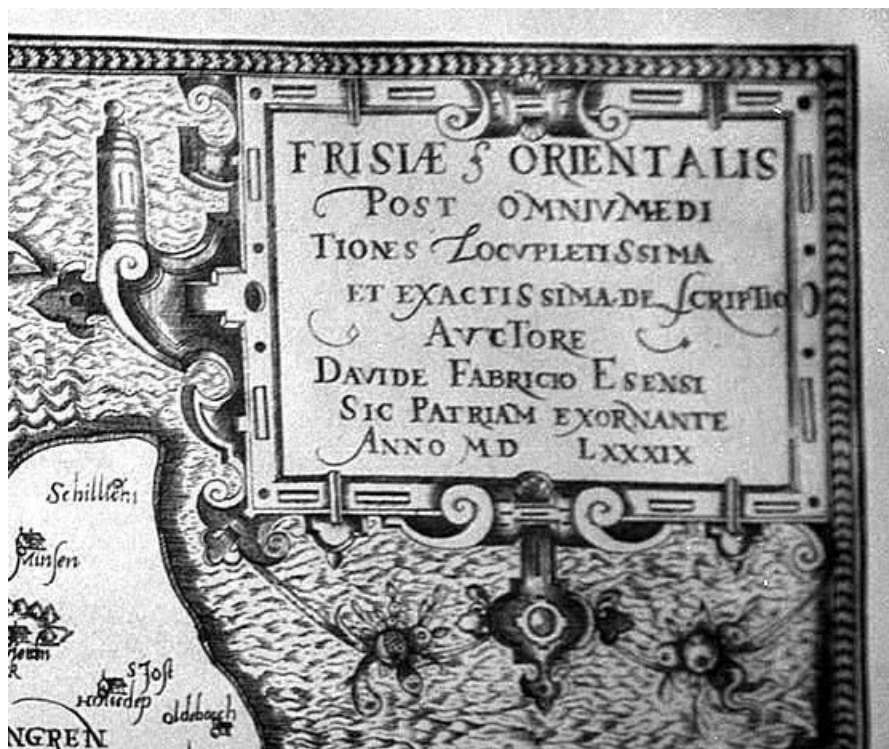 FRISIÆ ORIENTALIS
POST OMNIVM EDI
TIONES LOCVPLETISSIMA
ET EXACTISSIMA DESCRIPTIO
AVCTORE
DAVIDE FABRICIO ESENSI
SIC PATRIAM EXORNANTE
ANNO MD LXXXIX
Minsen
S Jost
oldeboich
NGREN